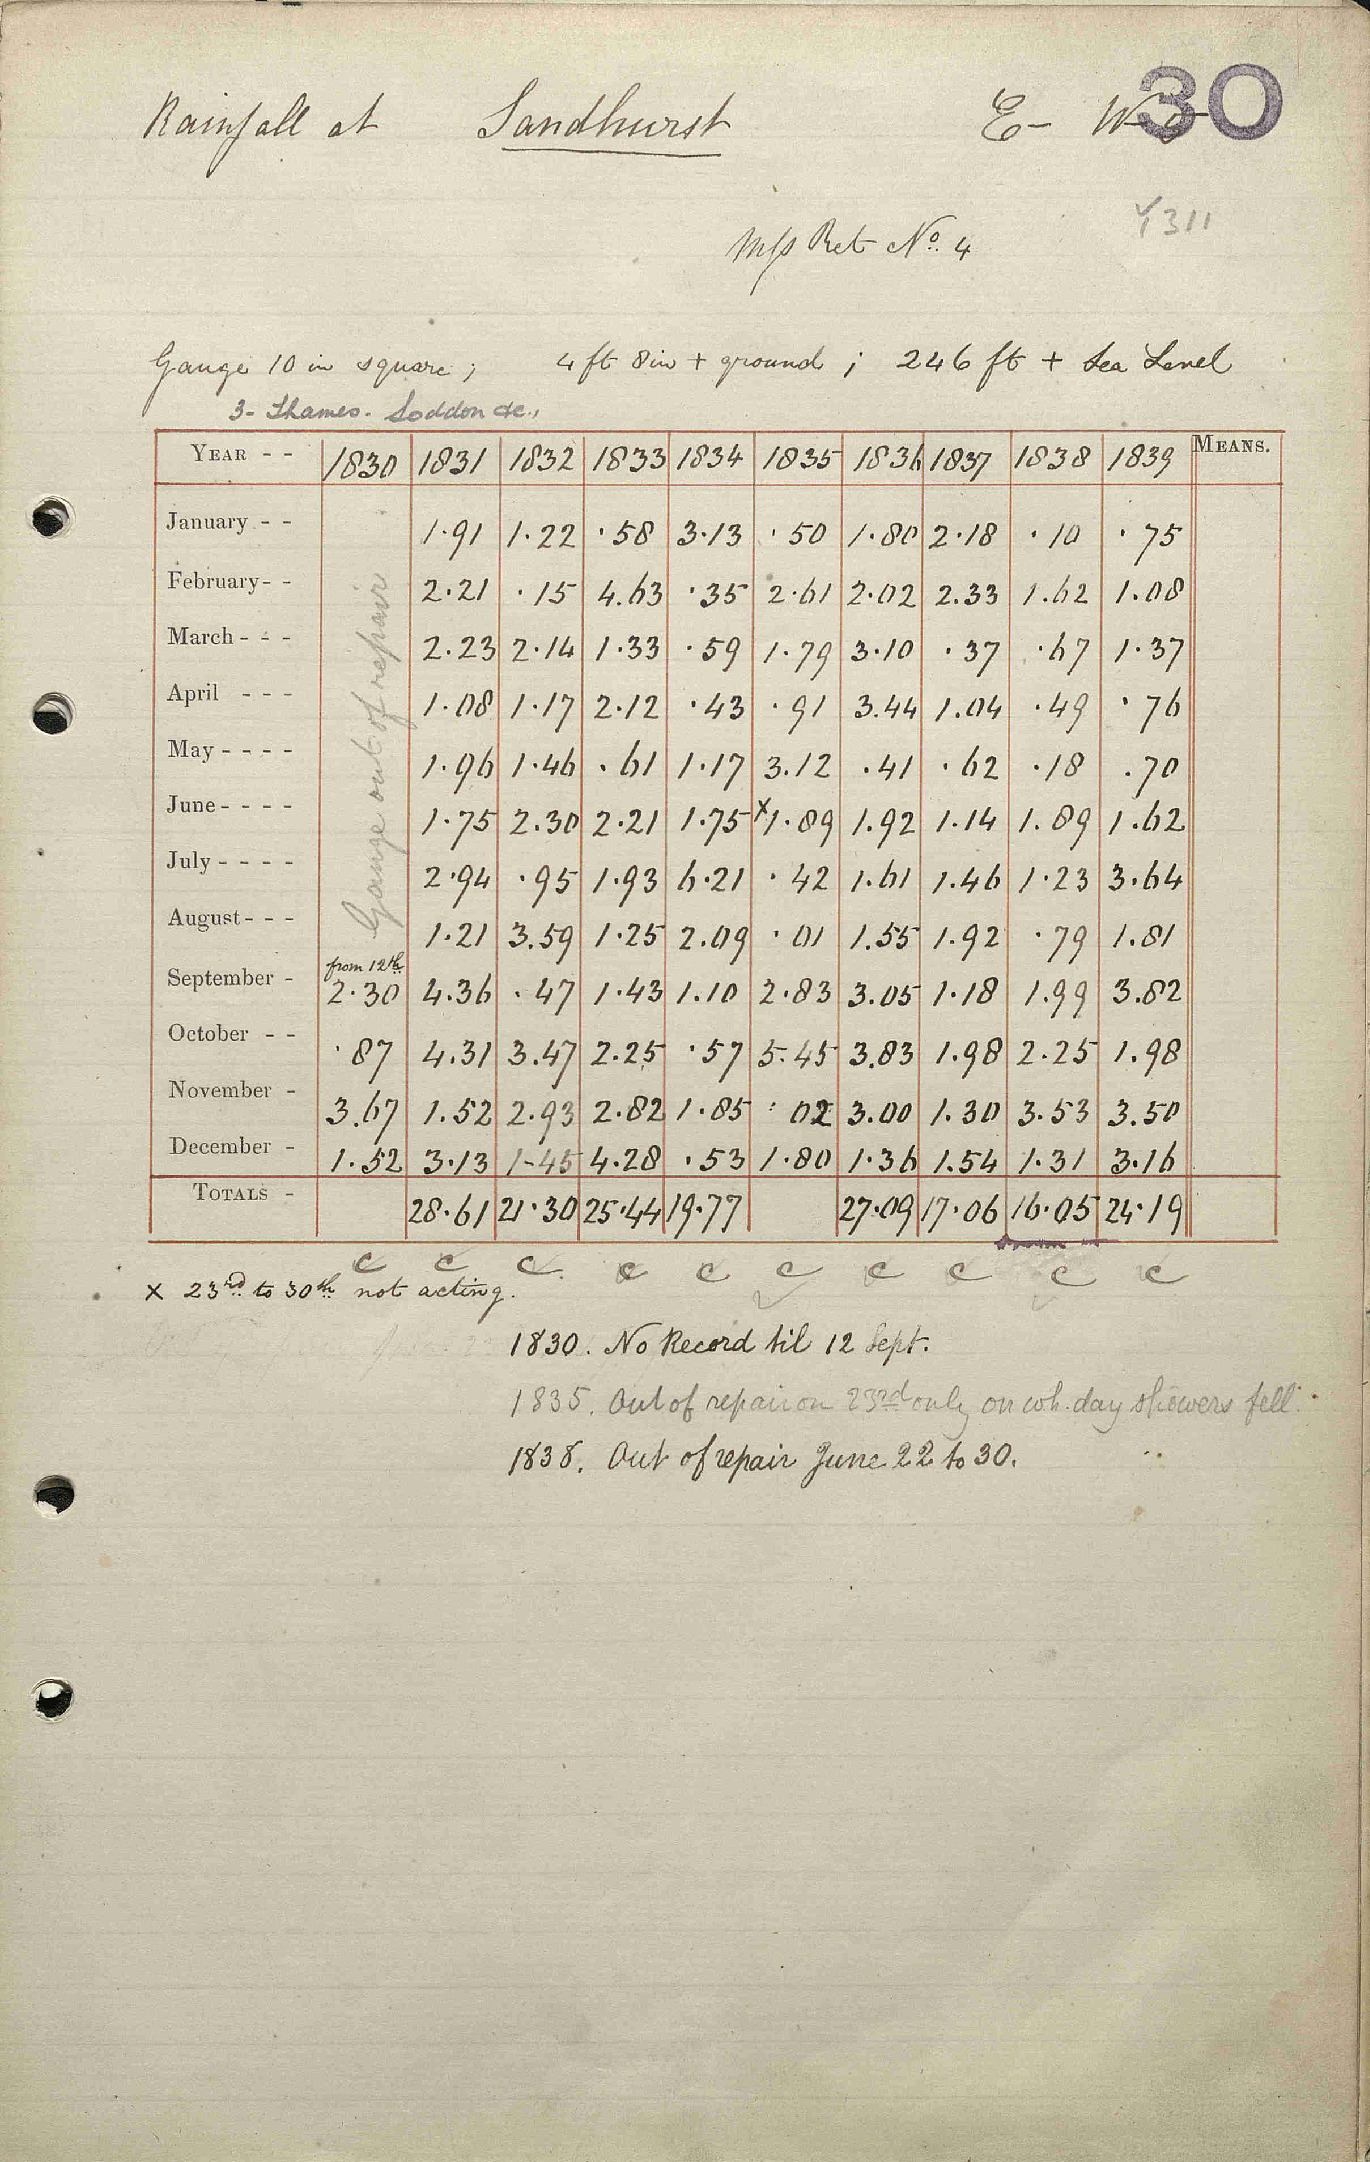 Rainfall at Sandhurst E- W 30
Y311
Mss Ret No. 4
Gauge 10 in square; 4 ft 8in + ground; 246 ft + Sea Level
3- Thames. Loddon &c.,
YEAR - - 1830 1831 1832 1833 1834 1835 1836 1837 1838 1839 MEANS.
January - - 1.91 1.22 .58 3.13 .50 1.80 2.18 .10 .75
February - - 2.21 .15 4.63 .35 2.61 2.02 2.33 1.62 1.08
March - - - 2.23 2.14 1.33 .59 1.79 3.10 .37 .67 1.37
April - - - 1.08 1.17 2.12 .43 .91 3.44 1.04 .49 .76
May - - - - 1.96 1.46 .61 1.17 3.12 .41 .62 .18 .70
June - - - - 1.75 2.30 2.21 1.75 x1.89 1.92 1.14 1.89 1.62
July - - - - 2.94 .95 1.93 6.21 .42 1.61 1.46 1.23 3.64
August - - - 1.21 3.59 1.25 2.09 .01 1.55 1.92 .79 1.81
Gauge out of repair
from 12th
September - 2.30 4.36 .47 1.43 1.10 2.83 3.05 1.18 1.99 3.82
October - - .87 4.31 3.47 2.25 .57 5.45 3.83 1.98 2.25 1.98
November - 3.67 1.52 2.93 2.82 1.85 .02 3.00 1.30 3.53 3.50
December - 1.52 3.13 1-45 4.28 .53 1.80 1.36 1.54 1.31 3.16
TOTALS - 28.61 21.30 25.44 19.77 27.09 17.06 16.05 24.19
c c c c c c c c c c
x 23rd to 30th not acting.
1830. No Record til 12 Sept.
1835. Out of repair on 23rd only on wh. day showers fell.
1838. Out of repair June 22 to 30.